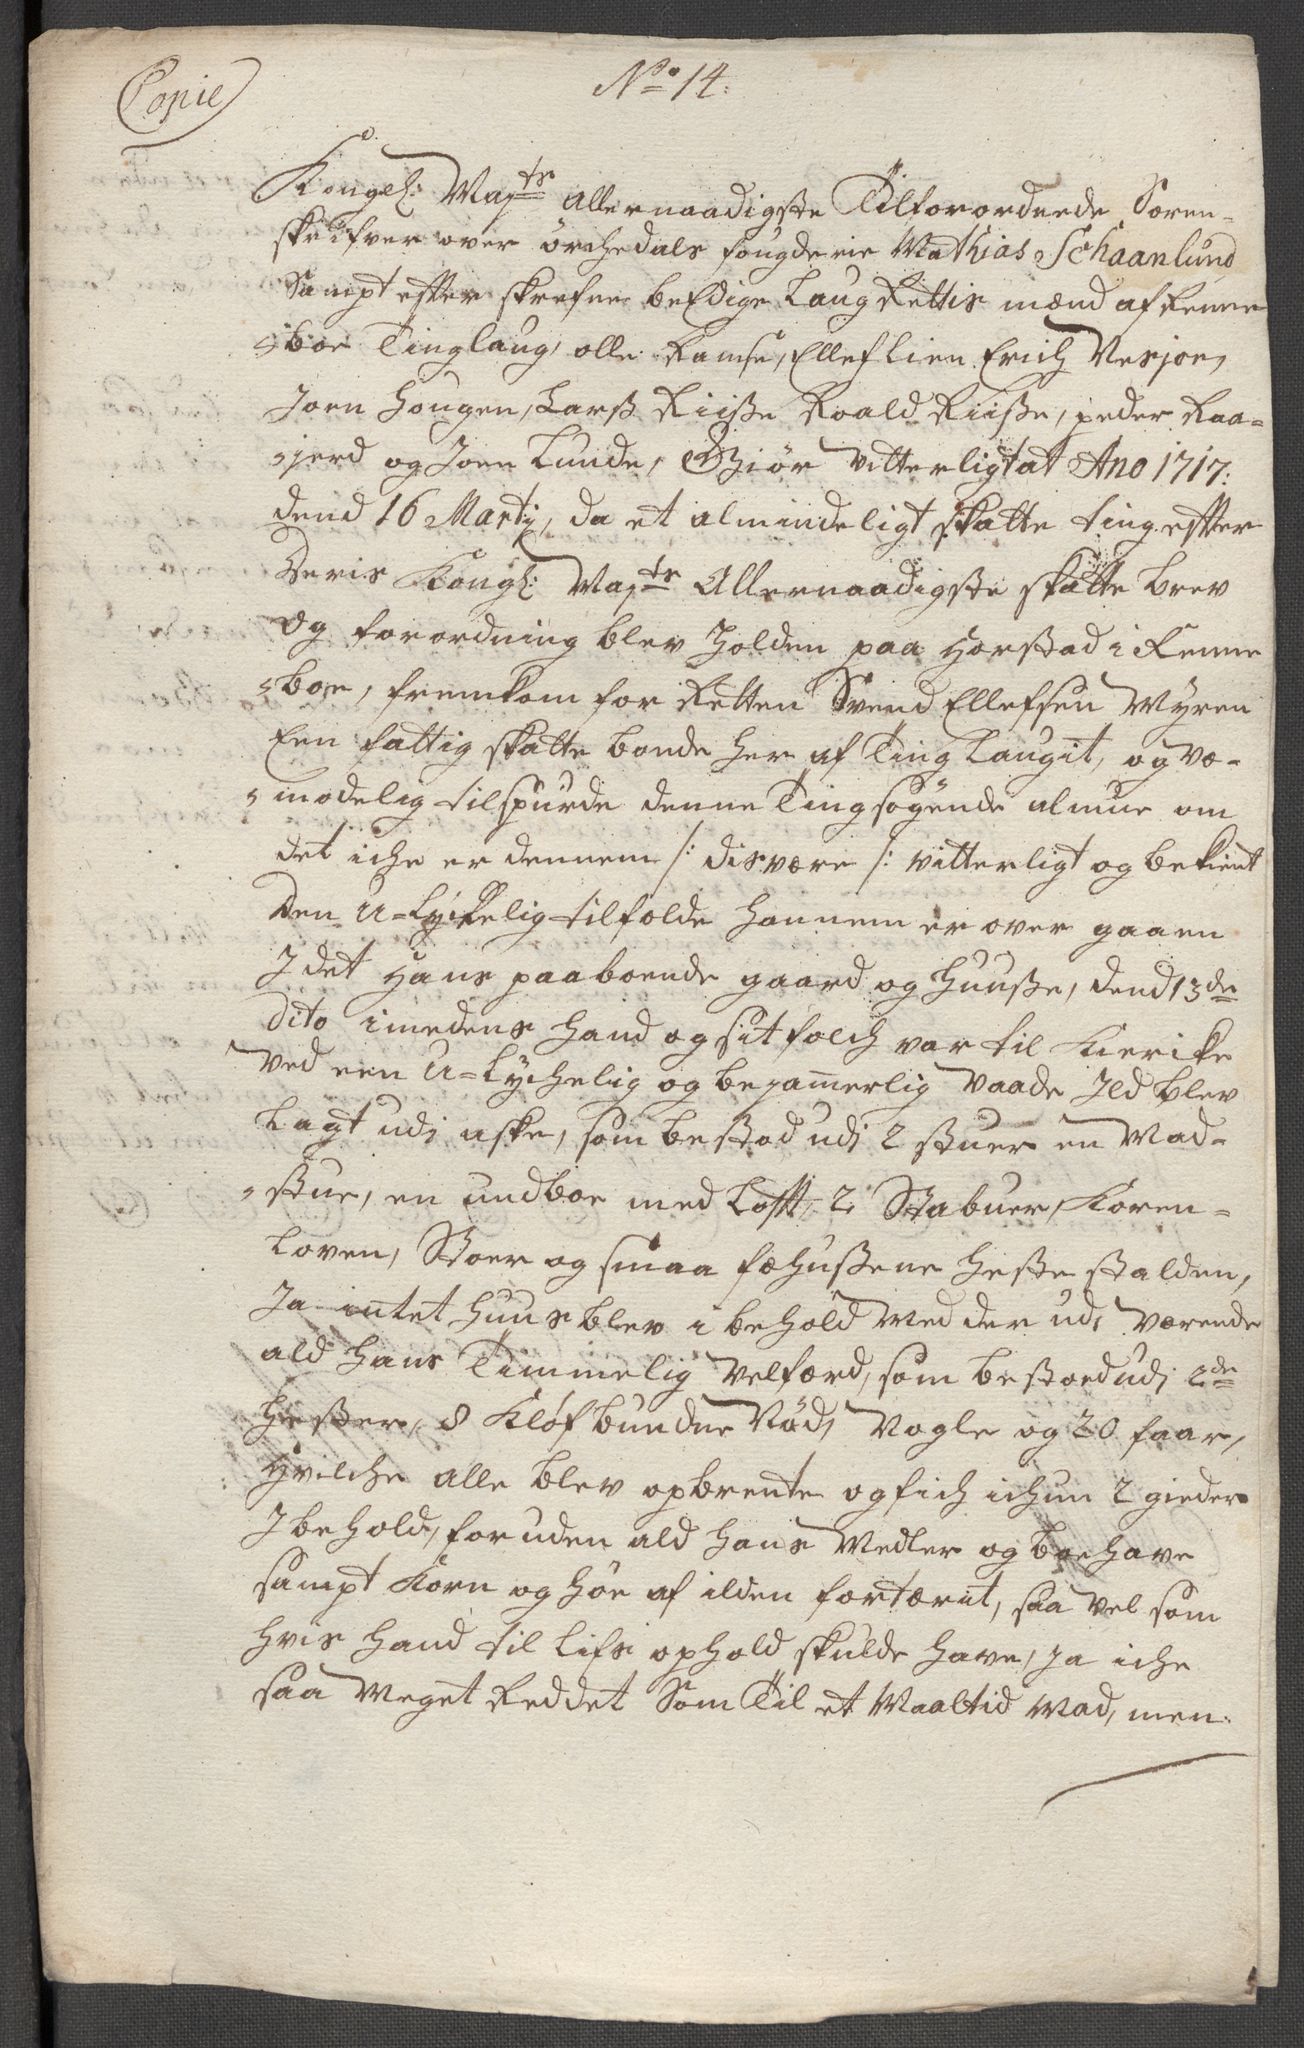 Copie
No 14.
Kongel: Mayts Allernaadigste Tilforordnede Soren-
skrifver over örchedals fougderie Mathias Schaanlund
Sampt efter skrefne beEdige Laug Rettis mænd af Renne
boe Tinglaug, olle Ramse, Ellef Lien Erich Nesjoe,
Joen hougen, Larss Riisse Roald Riisse, peder Raa-
jerd og Joen Lunde, Ghiör vitterligt at Ano 1717:
dend 16 Marty, da et almindeligt skatte ting efter
Deris Kongl: Mayts Allernaadigste skatte brev
og forordning blev holden paa Horstad i Renne
boe, fremkom for Retten Svend Ellefsen Myren
Een fattig skatte bonde her af Ting Lauget, og ve-
modelig tilspurde denne Tingsøgende almue om
det iche er dennem /: disvære :/ vitterligt og bekient
Den U-Lyckelig tilfelde hannem er over gaaen
I det Hans paaboende gaard og huusse, dend 13de
dito imedens hand og sit folch var til Kiercke
ved een U-Lychelig og bejamerlig vaade Ild blev
Lagt udj aske, som bestod udj 2 stuer en Mad-
stue, en undboe med Lofft, 2 Stabuer, Koren-
Loven, Stoer og smaa fæhussene heste stalden,
Ja intet huus blev i behold med der udj værende
ald hans Timmelig velfærd, som bestoed udj 2de
hester, 8 Kløfbundne Nød, Nogle og 20 faar,
Hvilche alle blev opbrente og fich ichun 2 gieder
I behold, foruden ald hans Medler og boehave
sampt Korn og høe af ilden fortærit, saa vel som
hvis hand til Lifs ophold skulde have, Ja iche
saa Meget Reddet Som Til et Maaltid Mad, men